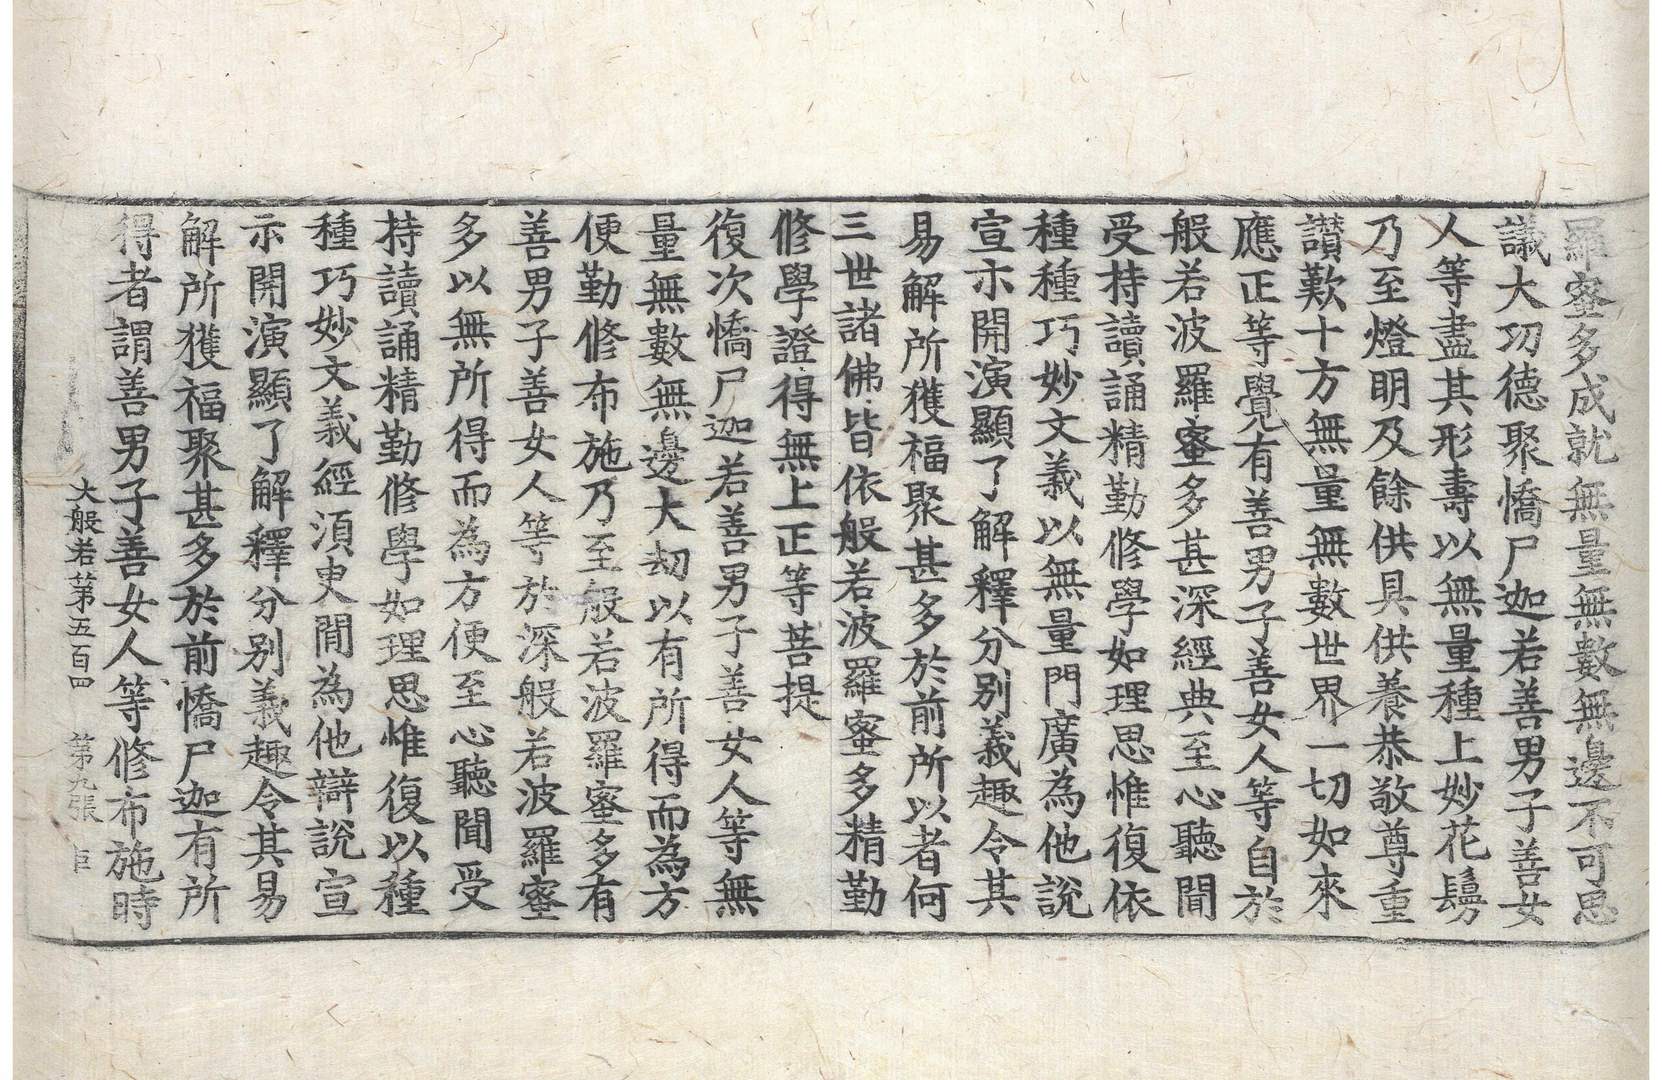 羅蜜多成就無量無數無邊不可思
議大功德聚憍尸迦若善男子善女
人等盡其形壽以無量種上妙花鬘
乃至燈明及餘供具供養恭敬尊重
讃歎十方無量無數世界一切如來
應正等覺有善男子善女人等自於
般若波羅蜜多甚深經典至心聽聞
受持讀誦精勤修學如理思惟復依
種種巧妙文義以無量門廣為他說
宣示開演顯了解釋分別義趣令其
易解所獲福聚甚多於前所以者何
三世諸佛皆依般若波羅蜜多精勤
修學證得無上正等菩提
復次憍尸迦若善男子善女人等無
量無數無邊大劫以有所得而為方
便勤修布施乃至般若波羅蜜多有
善男子善女人等於深般若波羅蜜
多以無所得而為方便至心聽聞受
持讀誦精勤修學如理思惟復以種
種巧妙文義經須臾間為他辯說宣
示開演顯了解釋分別義趣令其易
解所獲福聚甚多於前憍尸迦有所
得者謂善男子善女人等修布施時
大般若第五百四 第九張 巨